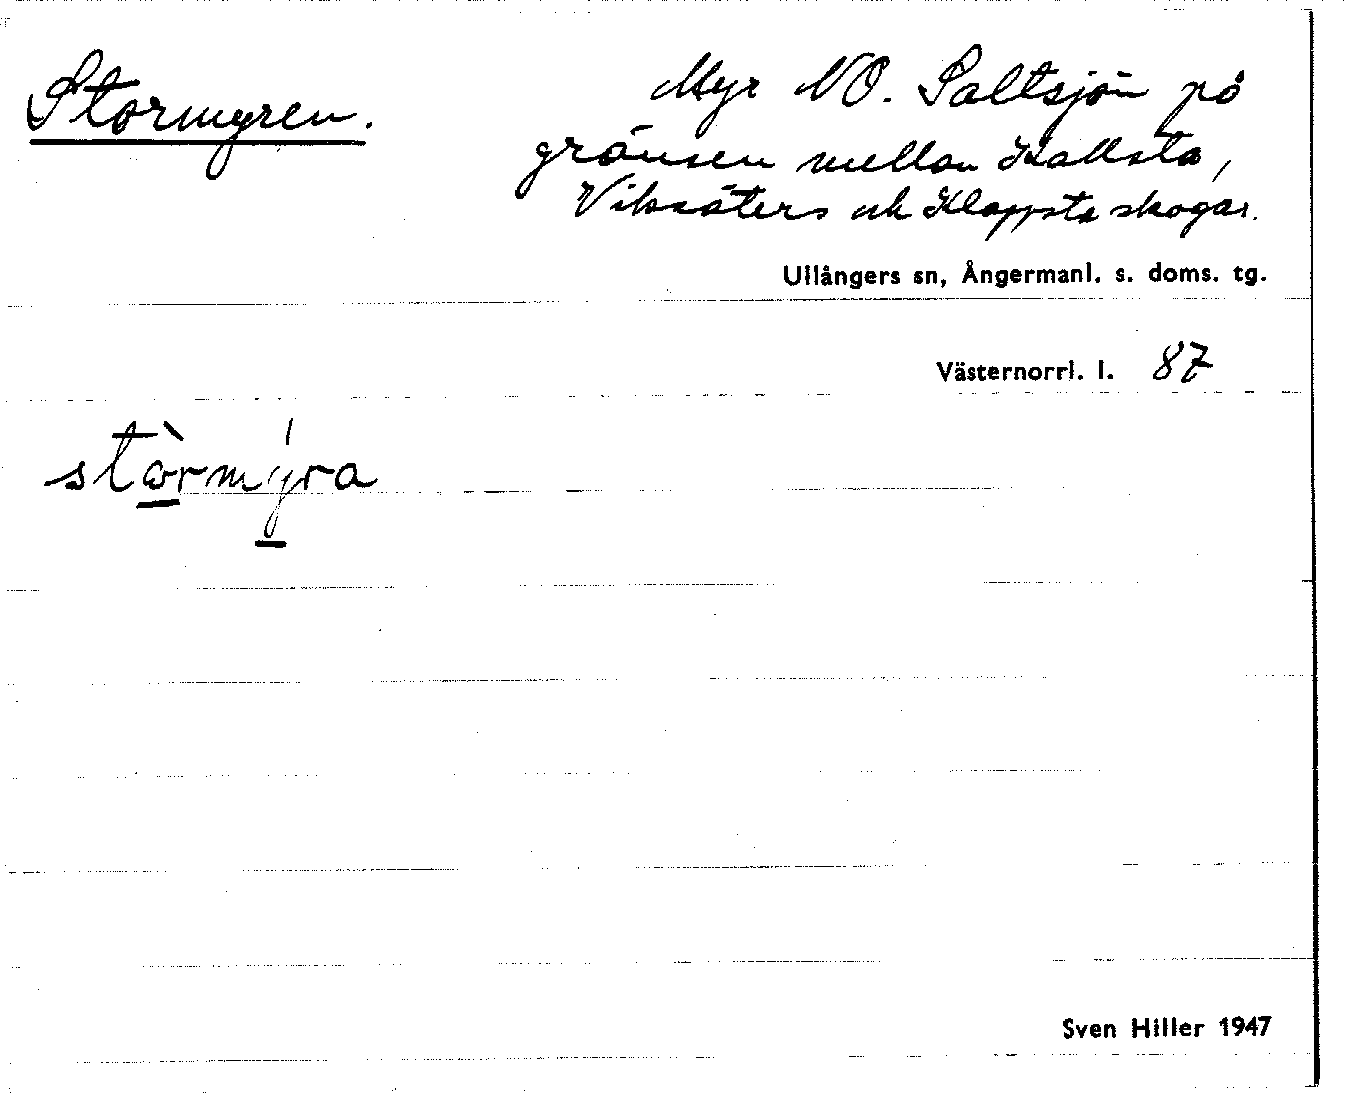 Stormyren.
Myr NO. Saltsjön på
gränsen mellan Hallsta,
Viksäters och Klappsta skogar.
Ullångers sn, Ångermanl. s. doms. tg.
Västernorrl. l. 87
stòrmýra
Sven Hiller 1947